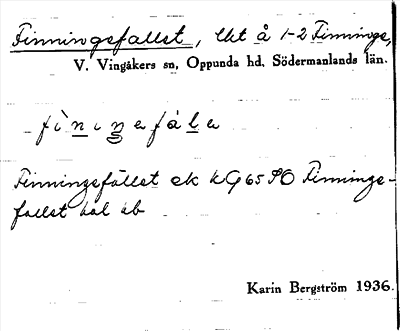 Finningsfallet, lht å 1-2 Finninge,
V. Vingåkers sn, Oppunda hd, Södermanlands län.
fìnıŋefála
Finningsfallet ek kG 65 SO Finninge-
fallet hal ab
Karin Bergström 1936.